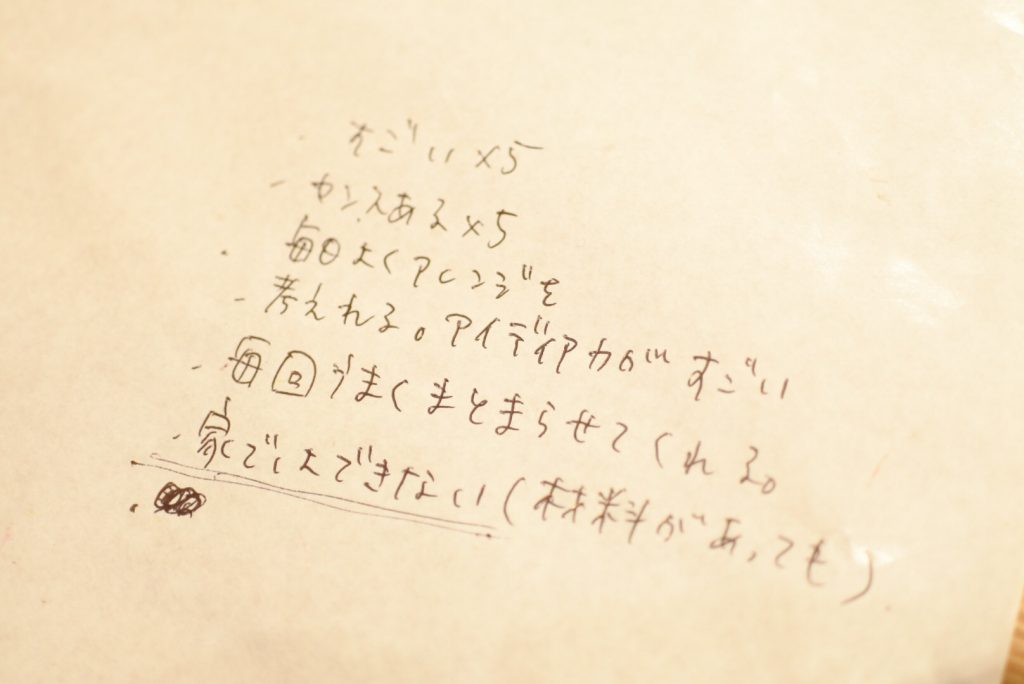 ・すごい×5
・センスある×5
・毎日よくアレンジを
・考えれる。アイディア力がすごい
・毎回うまくまとまらせてくれる。
・家ではできない(材料があっても)
・